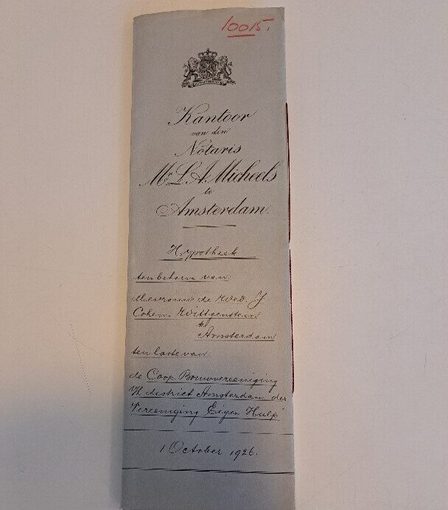 10015.
Kantoor
van den
Notaris
Mr. L. A. Micheels
te
Amsterdam
Hypotheek
ten behoeve van
Mevrouw de Wed. J
Cohen-Wittgenstein
te
Amsterdam
ten laste van
de Coöp. Bouwvereeniging
district Amsterdam der
Vereeniging Eigen Hulp
1 October 1926.